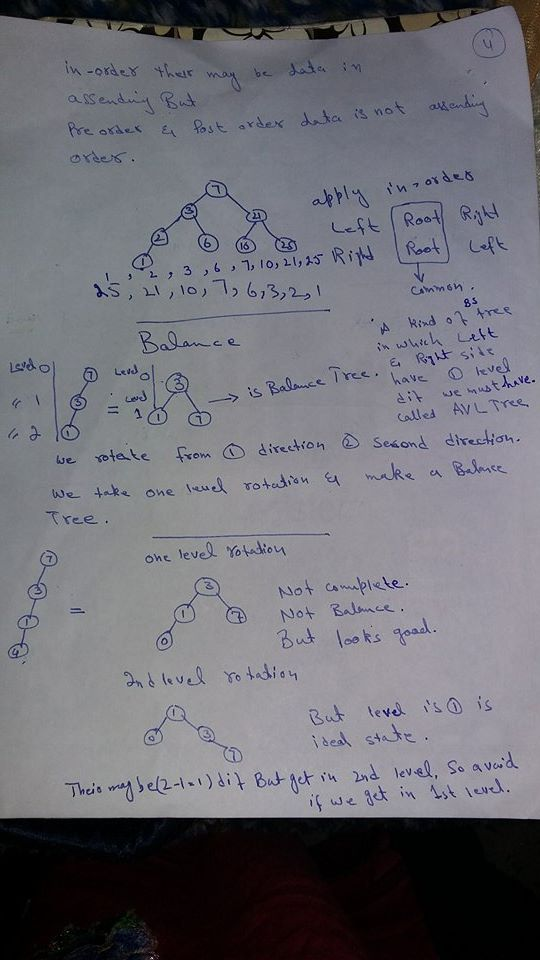 4
in-order ther may be data in
assending But
Pre order & Post order data is not assending
order.
7
3
21
2
6
10
25
1
apply in-order
Left Root Right
Right Root Left
common.
1, 2, 3, 6, 7, 10, 21, 25
25, 21, 10, 7, 6, 3, 2, 1
Balance
A kind of BS tree
in which Left
& Right side
have 1 level
dif we must have.
called AVL Tree
Level 0
" 1
" 2
7
3
1
=
Level 0
Level 1
3
1
7
→ is Balance Tree.
we rotate from 1 direction 2 second direction.
We take one level rotation & make a Balance
Tree.
one level rotation
7
3
1
=
3
1
7
0
Not complete.
Not Balance.
But looks good.
2nd level rotation
1
0
3
7
But level is 1 is
ideal state.
may be (2-1=1) dif But get in 2nd level, So avoid
if we get in 1st level.